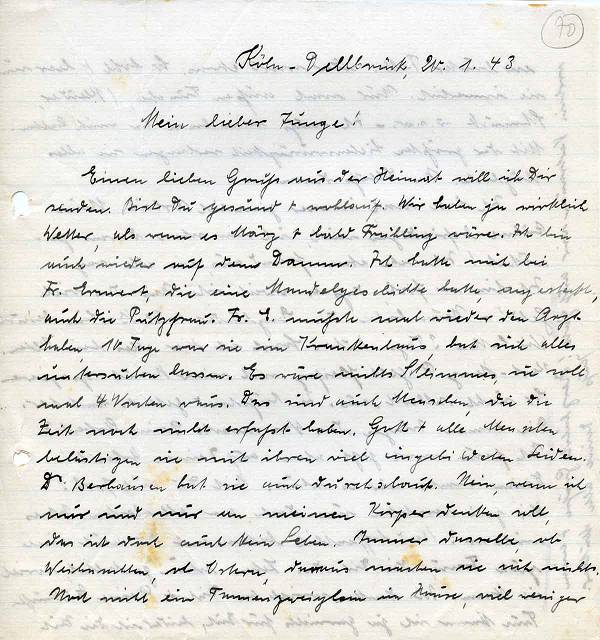 70
Köln-Dellbrück, 20.1.43
Mein lieber Junge!
Einen lieben Gruß aus der Heimat will ich Dir
senden. Bist Du gesund + wohlauf. Wir haben ja wirklich
Wetter, als wenn es März + bald Frühling wäre. Ich bin
auch wieder auf dem Damm. Ich hatte mich bei
Fr. die eine Mandelgeschichte hatte, angesteckt,
auch die Putzfrau. Fr. E. mußte mal wieder den Arzt
haben, 10 Tage war sie im Krankenhaus, hat sich alles
untersuchen lassen. Es wäre nichts Schlimmes, sie soll
mal 4 Wochen raus. Das sind auch Menschen, die die
Zeit noch nicht erfaßt haben. Gott + alle Menschen
belästigen sie mit ihren viel eingebildeten Leiden.
Dr. hat sie auch durchschaut. Nein, wenn ich
nur und nur an meinen Körper denken soll,
das ist doch auch kein Leben. Immer dasselbe, ob
Weihnachten, ob Ostern, daraus machen sie sich nichts.
Noch nicht ein Tannenzweiglein im Hause, viel weniger